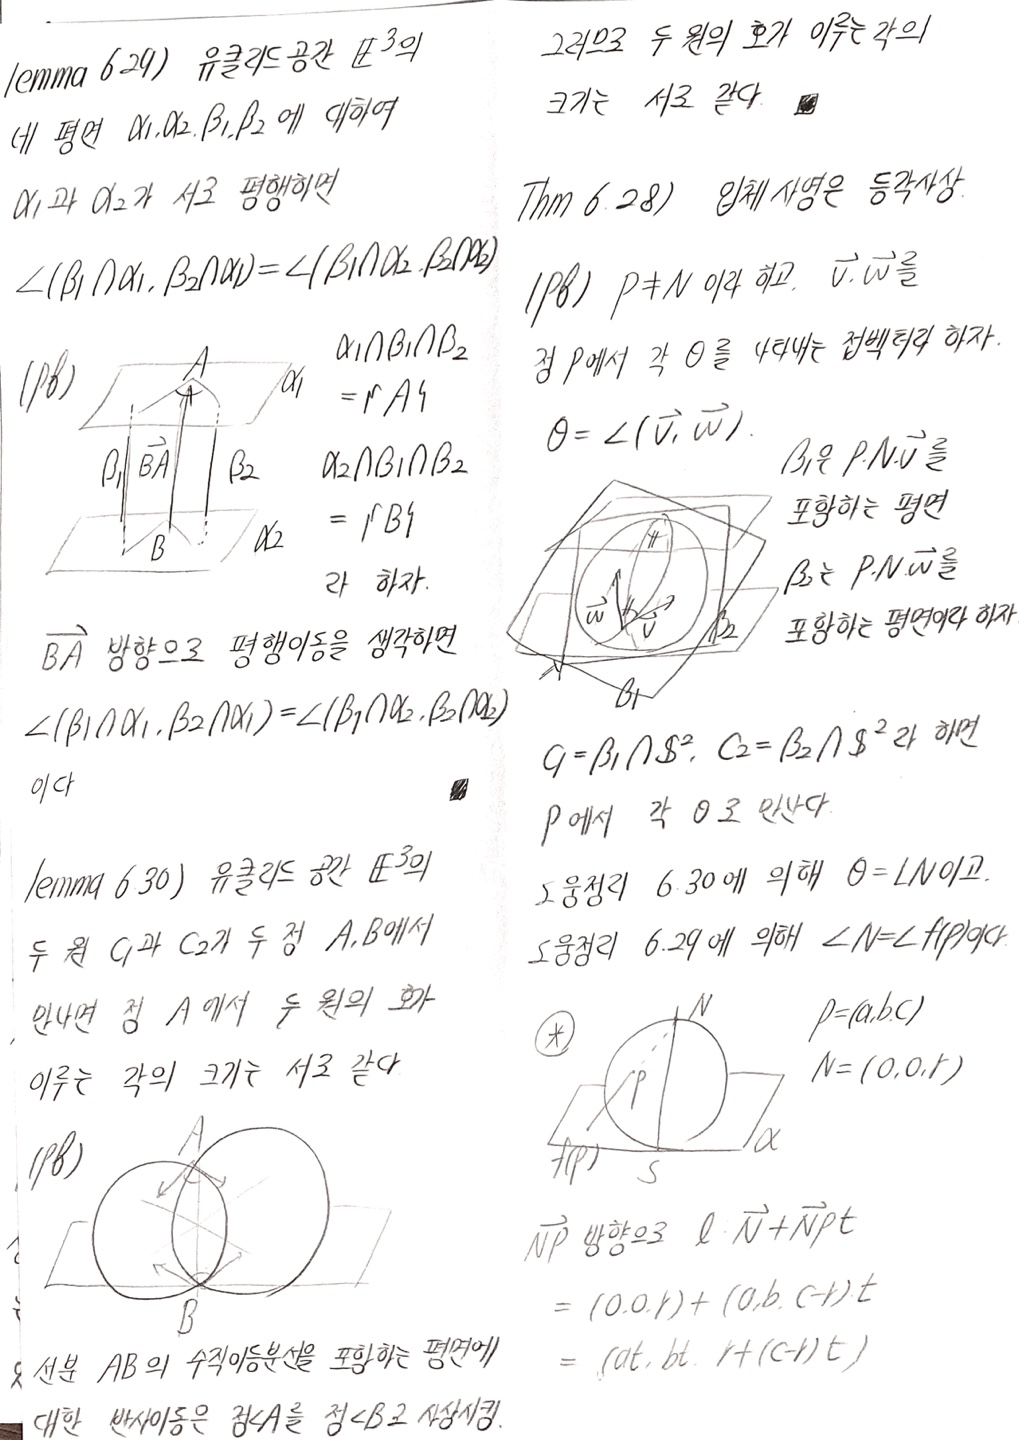 lemma 6.29) 유클리드 공간 𝔼³의
네 평면 α₁, α₂, β₁, β₂에 대하여
α₁과 α₂가 서로 평행하면
∠(β₁∩α₁, β₂∩α₁)=∠(β₁∩α₂, β₂∩α₂)
(pf)
A
α₁
β₁
BA
β₂
B
α₂
α₁∩β₁∩β₂
={A}
α₂∩β₁∩β₂
={B}
라 하자.
BA 방향으로 평행이동을 생각하면
∠(β₁∩α₁, β₂∩α₁)=∠(β₁∩α₂, β₂∩α₂)
이다
lemma 6.30) 유클리드 공간 𝔼³의
두 원 C₁과 C₂가 두 점 A, B에서
만나면 점 A에서 두 원의 호가
이루는 각의 크기는 서로 같다
(pf)
A
B
선분 AB의 수직이등분선을 포함하는 평면에
대한 반사이동은 점<A를 점<B로 사상시킴.
그러므로 두 원의 호가 이루는 각의
크기는 서로 같다
Thm 6.28) 입체사영은 등각사상.
(pf) P≠N 이라 하고, v, w를
점 P에서 각 θ를 나타내는 접벡터라 하자.
θ = ∠(v, w).
β₁은 P.N.v를
포함하는 평면
β₂는 P.N.w를
포함하는 평면이라 하자
w
v
β₂
β₁
C₁=β₁∩$², C₂=β₂∩$²라 하면
P에서 각 θ로 만난다.
도움정리 6.30에 의해 θ=∠N이고.
도움정리 6.29에 의해 ∠N=∠f(p)이다
*
N
P
f(p)
S
α
P=(a,b,c)
N=(0,0,r)
NP 방향으로 l: N+NPt
= (0.0.r)+(a,b, c-r)t
= (at, bt, r+(c-r)t)